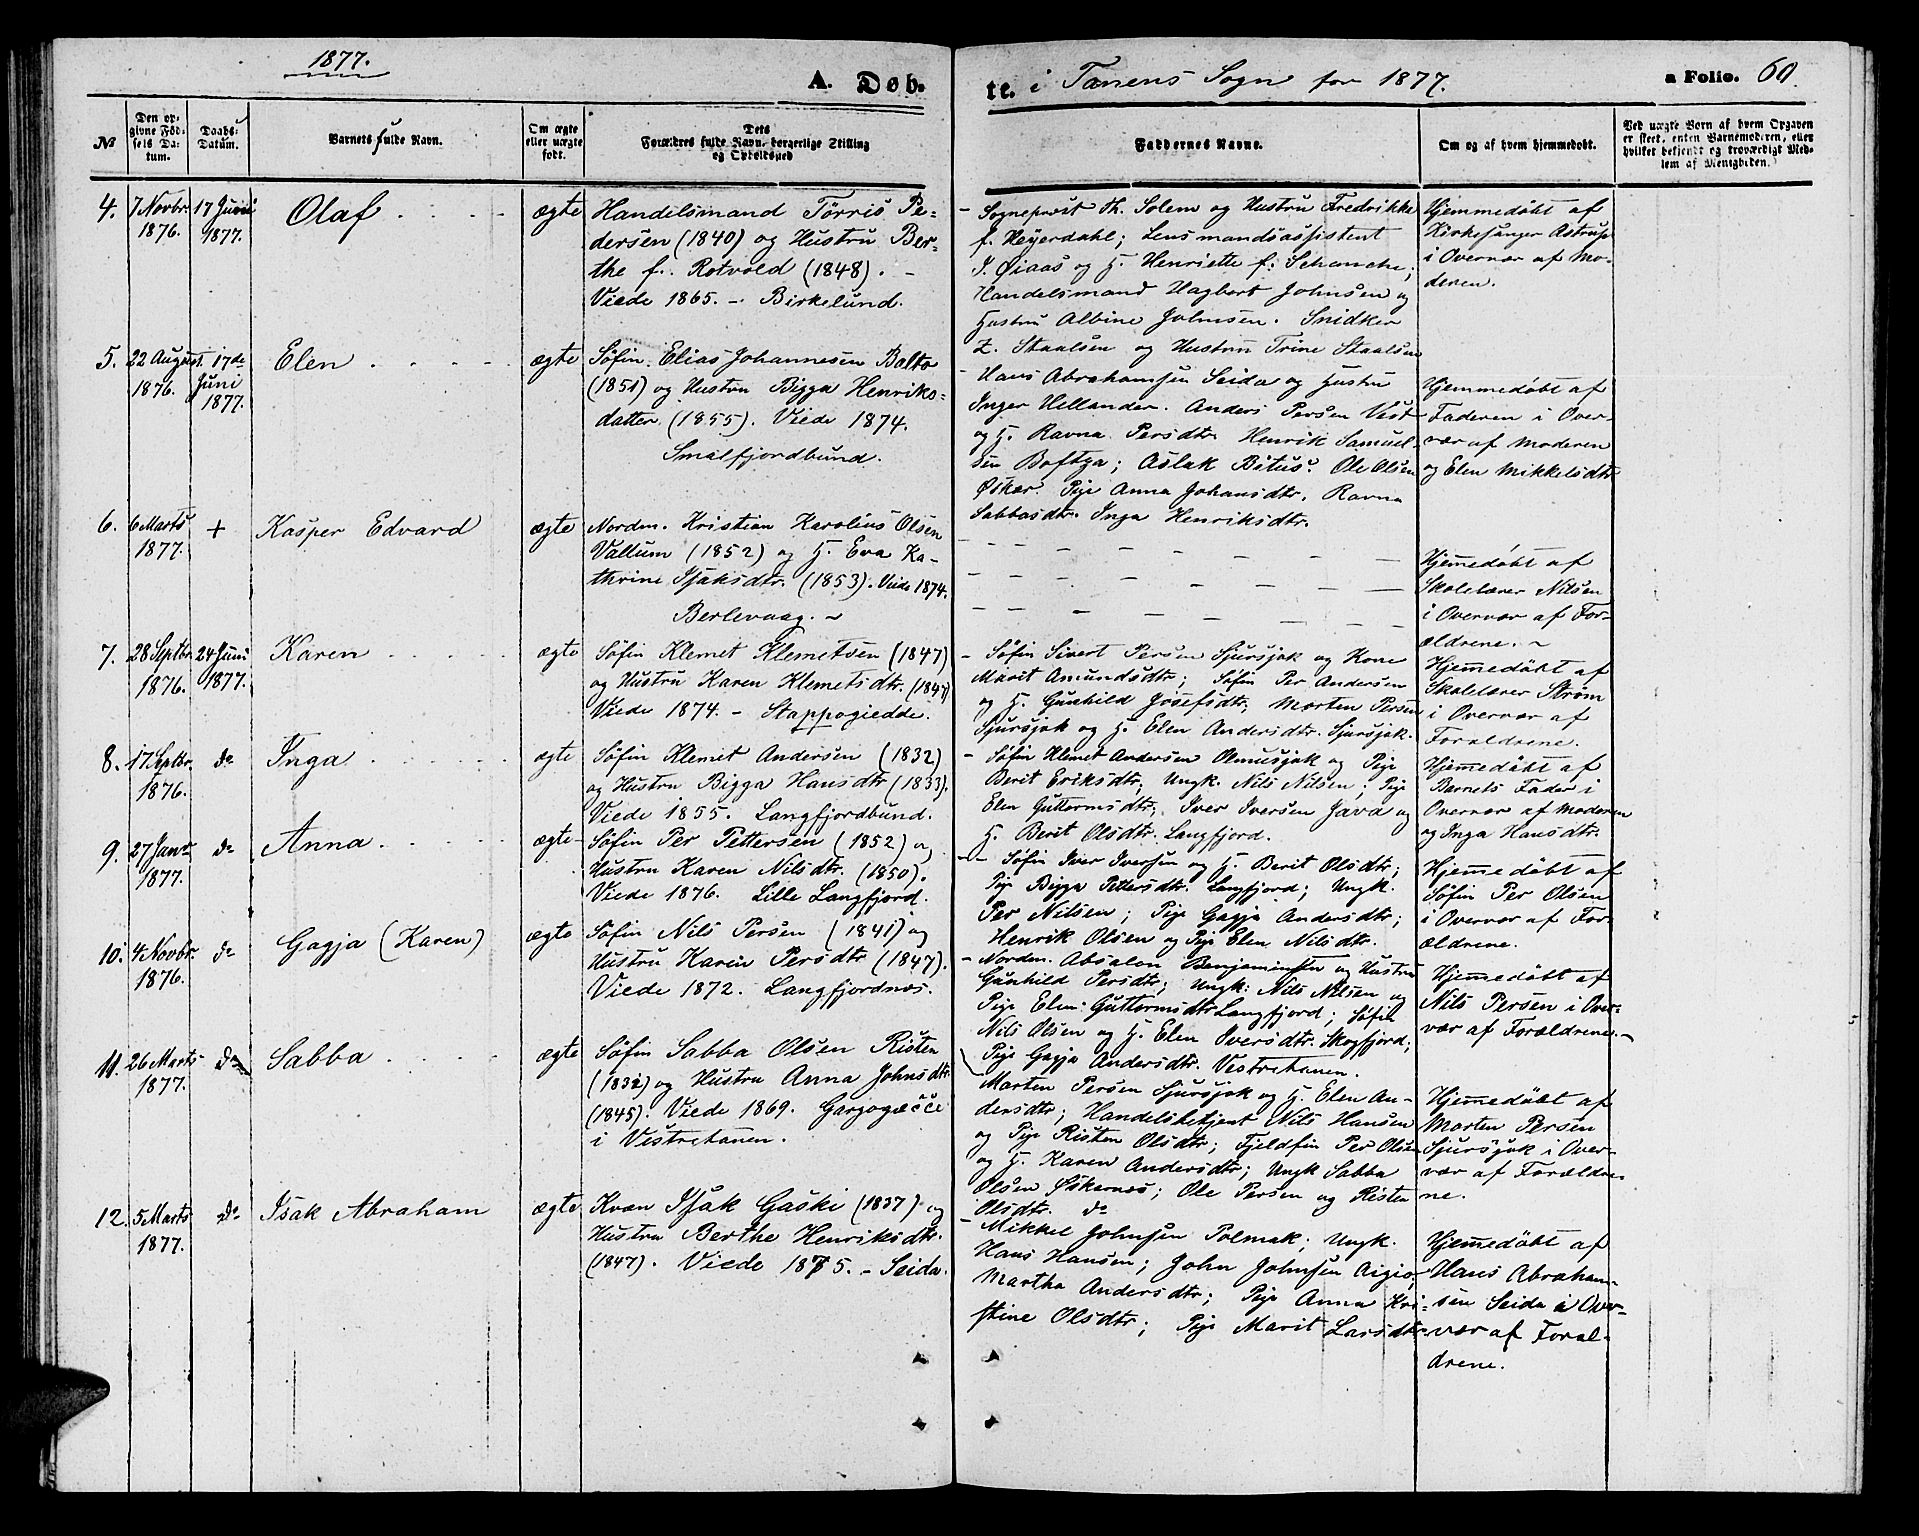 1877.
A. Døb-
№
Den op-
givne Fød-
sels Da-
tum.
Daabs-
Datum.
Barnets fulde Navn.
Om ægte
eller uægte
født.
Dets
Forældres fulde Navn, borgerlige Stilling
og Opholdssted
4. 7 Novbr. 1876. 17 Juni 1877. Olaf ægte
Handelsmand Törris Pe-
dersen (1840) og Hustru Ber-
the f. Rotvold (1848). -
Viede 1865. - Birkelund.
5. 22 August 1876. 17de Juni 1877. Elen ægte
Søfin. Elias Johannesen Balto
(1851) og Hustru Bigga Henriks-
datter (1855). Viede 1874.
Smalfjordbund.
6. 6 Marts 1877. + Kasper Edvard ægte
Nordm. Kristian Karolius Olsen
Vallum (1852) og H. Eva Ka-
thrine Isaksdtr. (1853). Viede 1874.
Berlevaag. -
7. 28 Septbr. 1876. 24 Juni 1877. Karen ægte
Søfin Klemet Klemetsen (1847)
og Hustru Karen Klemetsdtr. (1847)
Viede 1874. - Stappogiedde.
8. 17 Septbr. 1876. do Inga ægte
Søfin Klemet Andersen (1832)
og Hustru Bigga Hansdtr (1833).
Viede 1855. Langfjordbund.
9. 27 Janr 1877. do Anna ægte
Søfin Per Pettersen (1852) og
Hustru Karen Nilsdtr. (1850).
Viede 1876. Lille Langfjord.
10. 4 Novbr. 1876. do Gagja (Karen) ægte
Søfin Nils Persen (1841) og
Hustru Karen Persdtr (1847).
Viede 1872. Langfjordnæs.
11. 26 Marts 1877. do Sabba ægte
Søfin Sabba Olsen Risten
(1832) og Hustru Anna Johnsdtr.
(1845). Viede 1869. Gargogæčče
i Vestretanen.
12. 5 Marts 1877. do Isak Abraham ægte
Kvæn Isak Gaski (1837) og
Hustru Berthe Henriksdtr.
(1847). Viede 1875. - Seida.
te. i Tanens Sogn for 1877.
a Folio. 60.
Faddernes Navne.
Om og af hvem hjemmedøbt.
Ved uægte Børn af hvem Opgaven
er skeet, enten Barnemoderen, eller
hvilket bekjendt og troværdigt Med-
lem af Menigheden.
- Sogneprest Th. Solem og Hustru Fredrikke
f. Heyerdahl; Lensmandsassistent
J. Øiaas og H. Henriette f. Schanche;
Handelsmand Hagbart Johnsen og
Hustru Albine Johnsen. Snidker
Z. Staalsen og Hustru Trine Staalsen
Hjemmedöbt af
Kirkesanger Astrup
i Overvær af Mo-
deren.
- Hans Abrahamsen Seida og Hustru
Inger Hellander. Anders Persen Vest-
og H. Ravna Persdtr Henrik Samuel-
sen Boftga; Aslak Bitus. Ole Olsen
Øskar. Pige Anna Johansdtr. Ravna
Sabbasdtr. Inga Henriksdtr.
Hjemmedöbt af
Faderen i Over-
vær af Moderen
og Elen Mikkelsdtr
Hjemmedöbt af
Skolelærer Nilsen
i Overvær af For-
ældrene. -
- Søfin Sivert Persen Sjursjok og Kone
Marit Amundsdtr; Søfin Per Andersen
og H. Gunhild Josefsdtr; Morten Persen
Sjursjok og H. Elen Andersdtr. Sjursjok.
Hjemmedöbt af
Skolelærer Ström
i Overvær af
Forældrene.
- Søfin Klemet Andersen Olmusjok og Pige
Berit Eriksdtr; Ungk. Nils Nilsen; Pige
Elen Guttormsdtr; Iver Iversen Java og
H. Berit Olsdtr. Langfjord.
Hjemmedöbt af
Barnets Fader i
Overvær af Moderen
og Inga Hansdtr.
- Søfin Iver Iversen og H. Berit Olsdtr;
Pige Bigga Pettersdtr. Langfjord; Ungk.
Per Nilsen; Pige Gagja Andersdtr;
Henrik Olsen og Pige Elen Nilsdtr.
Hjemmedöbt af
Søfin Per Olsen
i Overvær af For-
ældrene.
- Nordm. Absalon Benjaminsen og Hustru
Gunhild Persdtr; Ungk: Nils Nilsen og
Pige Elen Guttormsdtr Langfjord; Søfin
Nils Olsen og H. Elen Iversdtr. Skogfjord;
Pige Gagja Andersdtr. Vestretanen.
Hjemmedöbt af
Nils Persen i Over-
vær af Forældrene. -
Morten Persen Sjursjok og H. Elen An-
dersdtr; Handelsbetjent Nils Hansen
og Pige Risten Olsdtr; Fjeldfin Per Olsen
og H. Karen Andersdtr; Ungk Sabba
Olsen Øskernes; Ole Persen og Risten
Olsdtr. do
Hjemmedöbt af
Morten Persen
Sjursjok i Over-
vær af Forældre-
ne.
- Mikkel Johnsen Polmak; Ungk.
Hans Hansen; John Johnsen Aigio;
Martha Andersdtr; Pige Anna Kri-
stine Olsdtr; Pige Marit Larsdtr.
Hjemmedöbt af
Hans Abraham-
sen Seida i Over-
vær af Foræl-
drene.